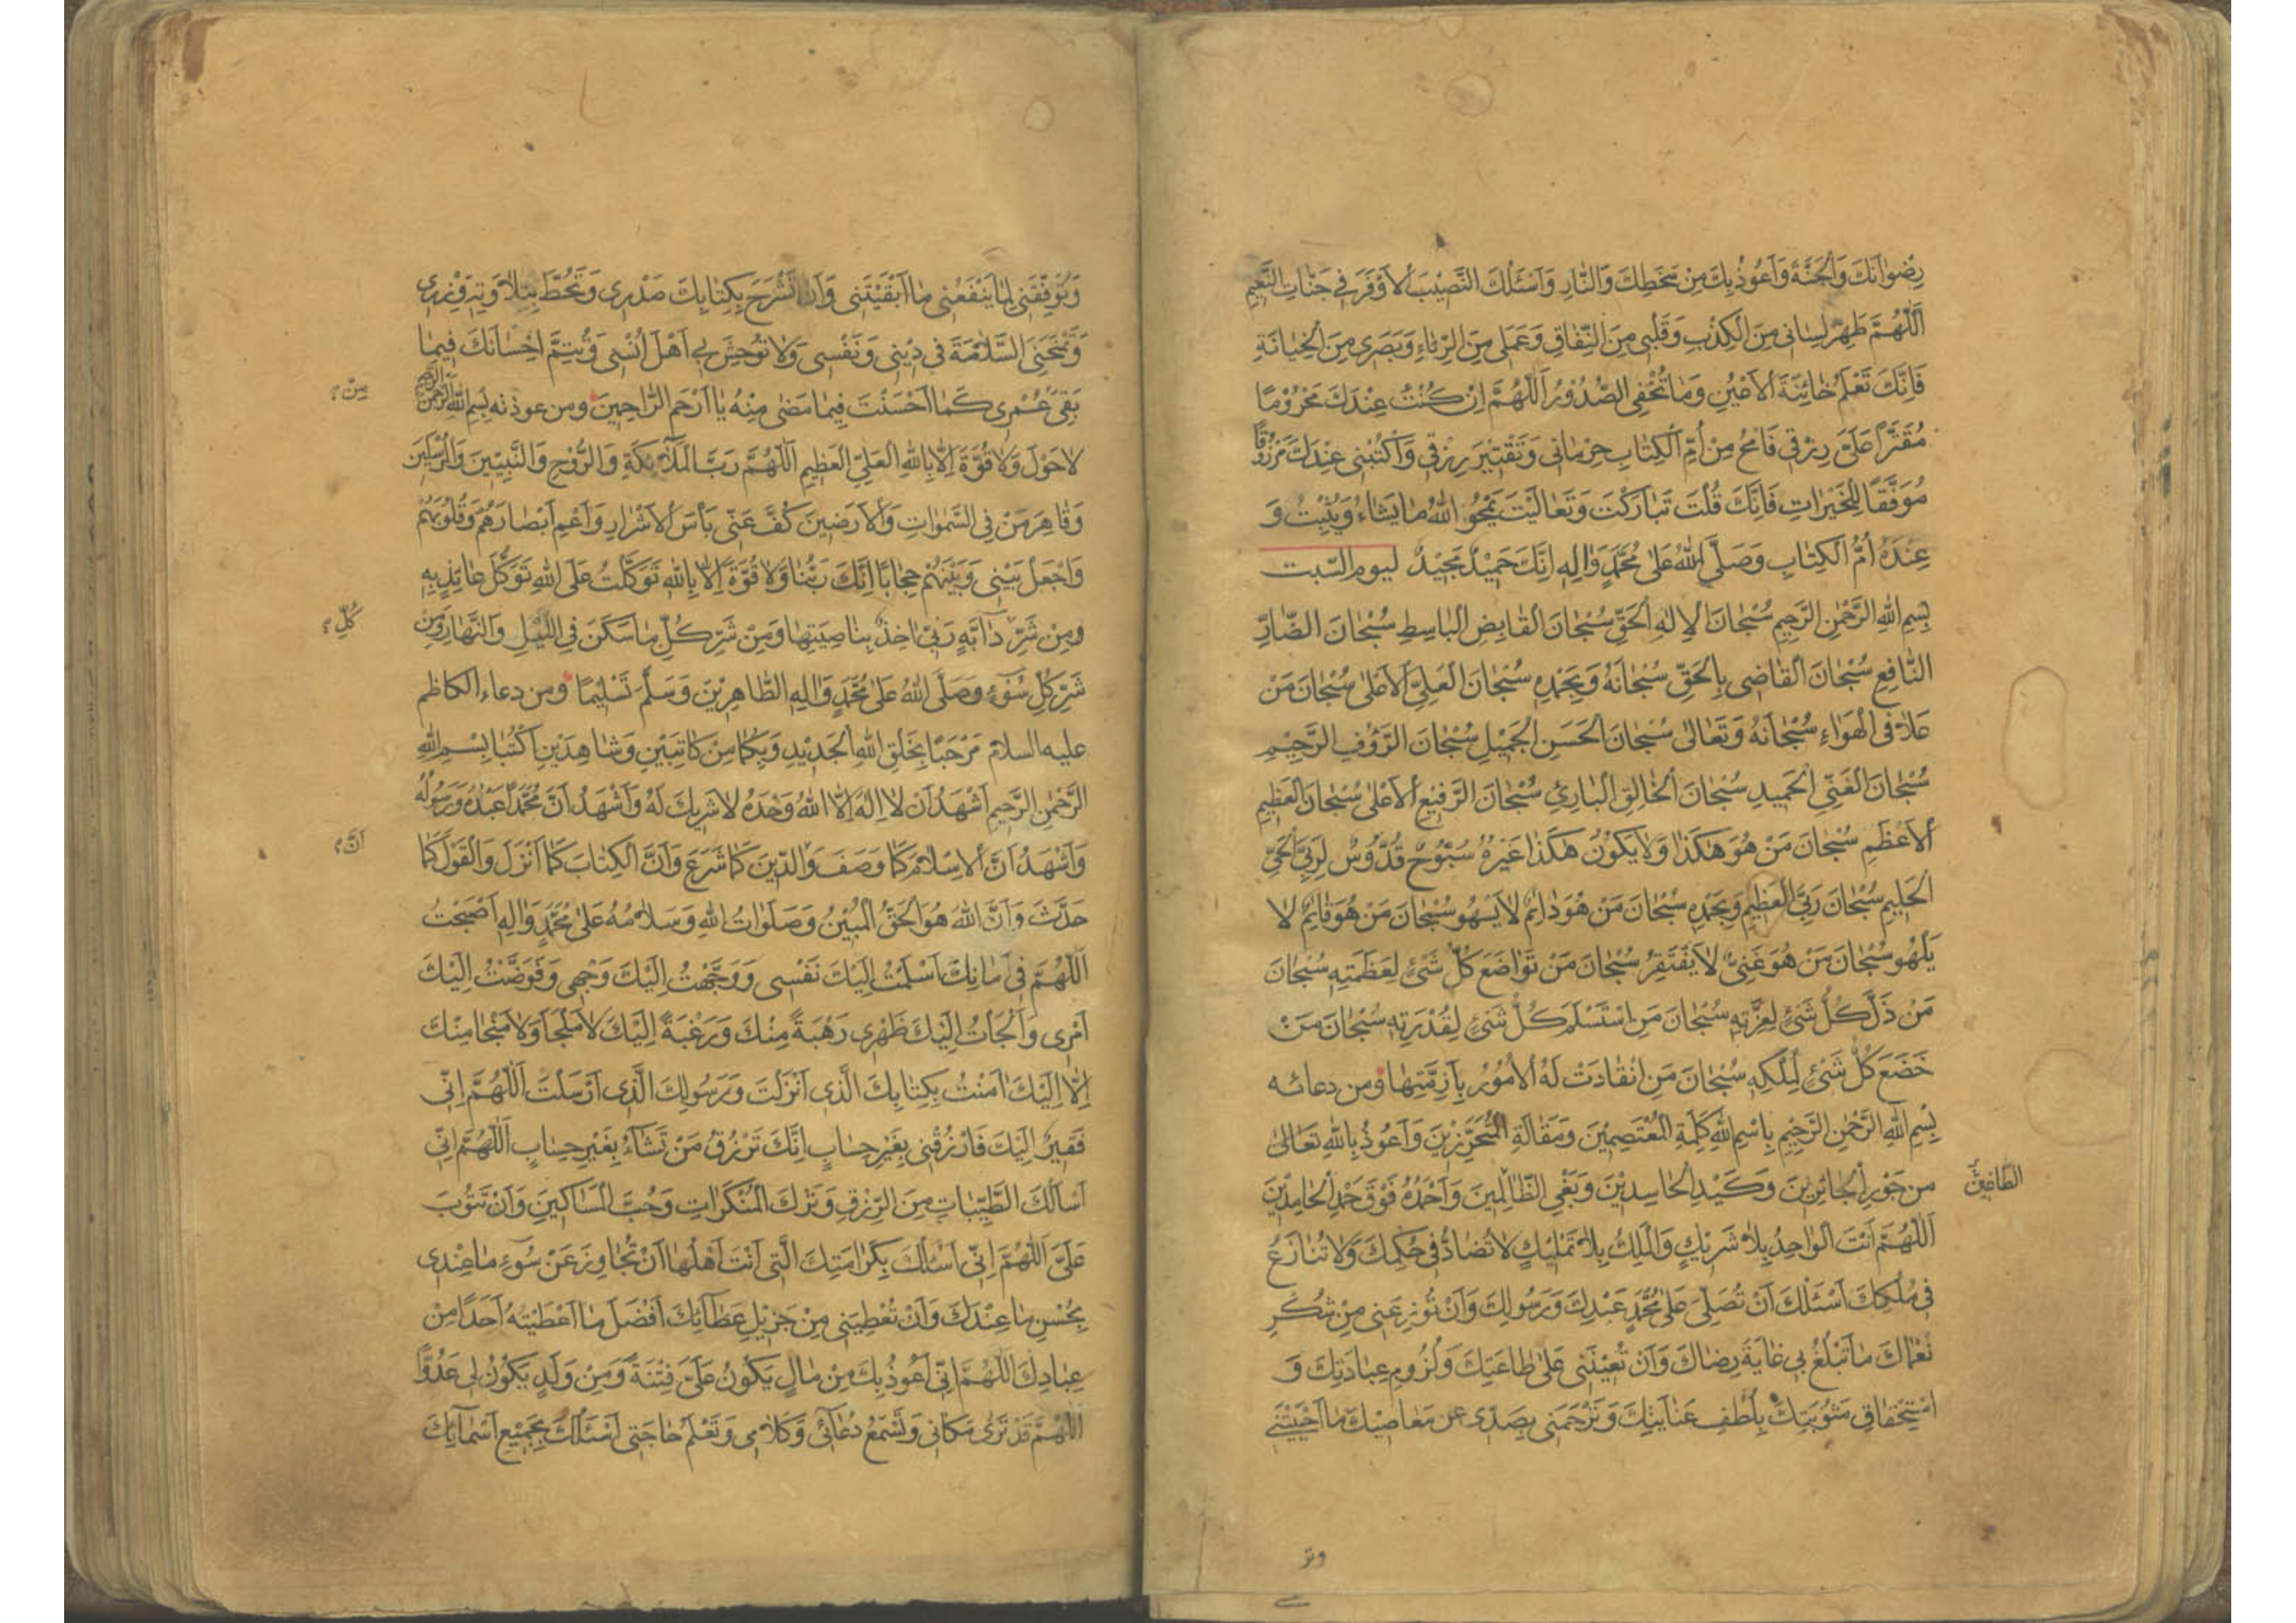 رِضْوانَكَ وَالْجَنَّةَ وَاَعُوذُ بِكَ مِنْ سَخَطِكَ وَالنّارِ وَاَسْئَلُكَ النَّصيْبَ الْاَوْفَرَ فِي جَنّاتِ النَّعِيْمِ
اَللّهُمَّ طَهِّرْ لِسانى مِنَ الْكِذْبِ وَقَلْبى مِنَ النِّفاقِ وَعَمَلى مِنَ الرِّياءِ وَبَصَرى مِنَ الْخِيانَةِ
فَاِنَّكَ تَعْلَمُ خائِنَةَ الْاَعْيُنِ وَما تُخْفِى الصُّدُوْرُ اَللّهُمَّ اِنْ كُنْتُ عِنْدَكَ مَحْرُوْمًا
مُقَتَّرًا عَلَىَّ رِزْقى فَامْحُ مِنْ اُمِّ الْكِتابِ حِرْمانى وَتَقْتيْرَ رِزْقى وَاكْتُبْنى عِنْدَكَ مَرْزُوْقًا
مُوَفَّقًا لِلْخَيْراتِ فَاِنَّكَ قُلْتَ تَبارَكْتَ وَتَعالَيْتَ يَمْحُو اللّهُ ما يَشاءُ وَيُثْبِتُ وَ
عِنْدَهُ اُمُّ الْكِتابِ وَصَلَّى اللّهُ عَلى مُحَمَّدٍ وَالِهِ اِنَّكَ حَمِيْدٌ مَجِيْدٌ ليوم السّبت
بِسْمِ اللّهِ الرَّحْمنِ الرَّحِيمِ سُبْحانَ الْاِلهِ الْحَقِّ سُبْحانَ الْقابِضِ الْباسِطِ سُبْحانَ الضّارِّ
النّافِعِ سُبْحانَ الْقاضِى بِالْحَقِّ سُبْحانَهُ وَبِحَمْدِهِ سُبْحانَ الْعَلِىِّ الْاَعْلى سُبْحانَ مَنْ
عَلا فى الْهَواءِ سُبْحانَهُ وَتَعالى سُبْحانَ الْحَسَنِ الْجَمِيْلِ سُبْحانَ الرَّؤُفِ الرَّحِيْمِ
سُبْحانَ الْغَنِىِّ الْحَمِيدِ سُبْحانَ الْخالِقِ الْبارِئِ سُبْحانَ الرَّفِيْعِ الْاَعْلى سُبْحانَ الْعَظِيمِ
الْاَعْظَمِ سُبْحانَ مَنْ هُوَ هكَذا وَلا يَكُوْنُ هكَذا غَيْرُهُ سُبُّوْحٌ قُدُّوْسٌ لِرَبِّىَ الْحَىِّ
الْحَلِيمِ سُبْحانَ رَبِّىَ الْعَظِيمِ وَبِحَمْدِهِ سُبْحانَ مَنْ هُوَ دائِمٌ لا يَسْهُو سُبْحانَ مَنْ هُوَ قائِمٌ لا
يَلْهُو سُبْحانَ مَنْ هُوَ غَنِىٌّ لا يَفْتَقِرُ سُبْحانَ مَنْ تَواضَعَ كُلُّ شَىْءٍ لِعَظَمَتِهِ سُبْحانَ
مَنْ ذَلَّ كُلُّ شَىْءٍ لِعِزَّتِهِ سُبْحانَ مَنِ اسْتَسْلَمَ كُلُّ شَىْءٍ لِقُدْرَتِهِ سُبْحانَ مَنْ
خَضَعَ كُلُّ شَىْءٍ لِمُلْكِهِ سُبْحانَ مَنِ انْقادَتْ لَهُ الْاُمُوْرُ بِاَزِمَّتِها ومن دعائه
بِسْمِ اللّهِ الرَّحْمنِ الرَّحِيْمِ بِاسْمِ اللّهِ كَلِمَةِ الْمُعْتَصِمِيْنَ وَمَقالَةِ الْمُتَحَرِّزِيْنَ وَاَعُوذُ بِاللّهِ تَعالى
مِنْ جَوْرِ الْجائِرِيْنَ وَكَيْدِ الْحاسِدِيْنَ وَبَغْىِ الظّالِمِينَ وَاَحْمَدُهُ فَوْقَ حَمْدِ الْحامِدِيْنَ
اَللّهُمَّ اَنْتَ الْواحِدُ بِلا شَرِيْكٍ وَالْمَلِكُ بِلا تَمْلِيْكٍ لا تُضادُّ فى حُكْمِكَ وَلا تُنازَعُ
فى مُلْكِكَ اَسْئَلُكَ اَنْ تُصَلِّىَ عَلى مُحَمَّدٍ عَبْدِكَ وَرَسُولِكَ وَاَنْ تُوْزِعَنى مِنْ شُكْرِ
نُعْماكَ ما تَبْلُغُ بى غايَةَ رِضاكَ وَاَنْ تُعِيْنَنى عَلى طاعَتِكَ وَلُزُومِ عِبادَتِكَ وَ
اسْتِحْقاقِ مَثُوْبَتِكَ بِلُطْفِ عِنايَتِكَ وَتَرْحَمَنى بِصَدّى عن مَعاصِيْكَ ما اَحْيَيْتَنى
الطّاغِيْنَ
وتو
وَتُوَفِّقَنى لِما يَنْفَعُنى ما اَبْقَيْتَنى وَاَنْ تَشْرَحَ بِكِتابِكَ صَدْرى وَتَحُطَّ بِتِلاوَتِهِ وِزْرى
وَتَمْنَحَنِىَ السَّلامَةَ فى دِيْنى وَنَفْسى وَلا تُوْحِشَ بى اَهْلَ اُنْسى وَتُتِمَّ اِحْسانَكَ فِيْما
بَقِىَ عُمْرى كَما اَحْسَنْتَ فِيما مَضى مِنْهُ يا اَرْحَمَ الرّاحِمِينَ ومن عوذته بِسْمِ اللّهِ الرَّحْمنِ الرَّحِيمِ
مِنْ؟
لا حَوْلَ وَلا قُوَّةَ اِلّا بِاللّهِ الْعَلِىِّ الْعَظِيمِ اَللّهُمَّ رَبَّ الْمَلآئِكَةِ وَالرُّوْحِ وَالنَّبِيّيْنَ وَالْمُرْسَلِيْنَ
وَقاهِرَ مَنْ فِى السَّمواتِ وَالْاَرَضِينَ كُفَّ عَنّى بَأْسَ الْاَشْرارِ وَاَعْمِ اَبْصارَهُمْ وَقُلُوْبَهُمْ
وَاجْعَلْ بَيْنى وَبَيْنَهُمْ حِجابًا اِنَّكَ رَبُّنا وَلا قُوَّةَ اِلّا بِاللّهِ تَوَكَّلْتُ عَلَى اللّهِ تَوَكُّلَ عائِذٍ بِهِ
ومِنْ شَرِّ دآبَّةٍ رَبّى اخِذٌ بِناصِيَتِها وَمِنْ شَرِّ كُلِّ ما سَكَنَ فِى اللَّيْلِ وَالنَّهارِ وَمِنْ
كُلِّ؟
شَرِّ كُلِّ سُوْءٍ وَصَلَّى اللّهُ عَلى مُحَمَّدٍ وَالِهِ الطّاهِرِيْنَ وَسَلَّمَ تَسْلِيْمًا ومن دعاء الكاظم
عليه السلام مَرْحَبًا بِخَلْقِ اللّهِ الْجَدِيْدِ وَبِكُما مِنْ كاتِبَيْنِ وَشاهِدَيْنِ اُكْتُبا بِسْمِ اللّهِ
الرَّحْمنِ الرَّحِيمِ اَشْهَدُ اَنْ لا اِلهَ اِلَّا اللّهُ وَحْدَهُ لا شَرِيكَ لَهُ وَاَشْهَدُ اَنَّ مُحَمَّدًا عَبْدُهُ وَرَسُولُهُ
وَاَشْهَدُ اَنَّ الْاِسْلامَ كَما وَصَفَ وَالدّينَ كَما شَرَعَ وَاَنَّ الْكِتابَ كَما اَنْزَلَ وَالْقَوْلَ كَما
اَنَّ؟
حَدَّثَ وَاَنَّ اللّهَ هُوَ الْحَقُّ الْمُبِيْنُ وَصَلَواتُ اللّهِ وَسَلامُهُ عَلى مُحَمَّدٍ وَالِهِ اَصْبَحْتُ
اَللّهُمَّ فى اَمانِكَ اَسْلَمْتُ اِلَيْكَ نَفْسى وَوَجَّهْتُ اِلَيْكَ وَجْهى وَفَوَّضْتُ اِلَيْكَ
اَمْرى وَاَلْجَأْتُ اِلَيْكَ ظَهْرى رَهْبَةً مِنْكَ وَرَغْبَةً اِلَيْكَ لا مَلْجَاَ وَلا مَنْجا مِنْكَ
اِلّا اِلَيْكَ امَنْتُ بِكِتابِكَ الَّذى اَنْزَلْتَ وَرَسُولِكَ الَّذى اَرْسَلْتَ اَللّهُمَّ اِنّى
فَقيرٌ اِلَيْكَ فَارْزُقْنى بِغَيْرِ حِسابٍ اِنَّكَ تَرْزُقُ مَنْ تَشآءُ بِغَيْرِ حِسابٍ اَللّهُمَّ اِنّى
اَسْاَلُكَ الطَّيِّباتِ مِنَ الرِّزْقِ وَتَرْكَ الْمُنْكَراتِ وَحُبَّ الْمَساكِينَ وَاَنْ تَتُوْبَ
عَلَىَّ اَللّهُمَّ اِنّى اَسْاَلُكَ بِكَرامَتِكَ الَّتى اَنْتَ اَهْلُها اَنْ تُجاوِزَ عَنْ سُوْءِ ما عِنْدى
بِحُسْنِ ما عِنْدَكَ وَاَنْ تُعْطِيَنى مِنْ جَزِيْلِ عَطآئِكَ اَفْضَلَ ما اَعْطَيْتَهُ اَحَدًا مِنْ
عِبادِكَ اَللّهُمَّ اِنّى اَعُوْذُ بِكَ مِنْ مالٍ يَكُوْنُ عَلَىَّ فِتْنَةً وَمِنْ وَلَدٍ يَكُوْنُ لى عَدُوًّا
اَللّهُمَّ قَدْ تَرى مَكانى وَتَسْمَعُ دُعآئى وَكَلامى وَتَعْلَمُ حاجَتى اَسْئَلُكَ بِجَمِيْعِ اَسْمآئِكَ